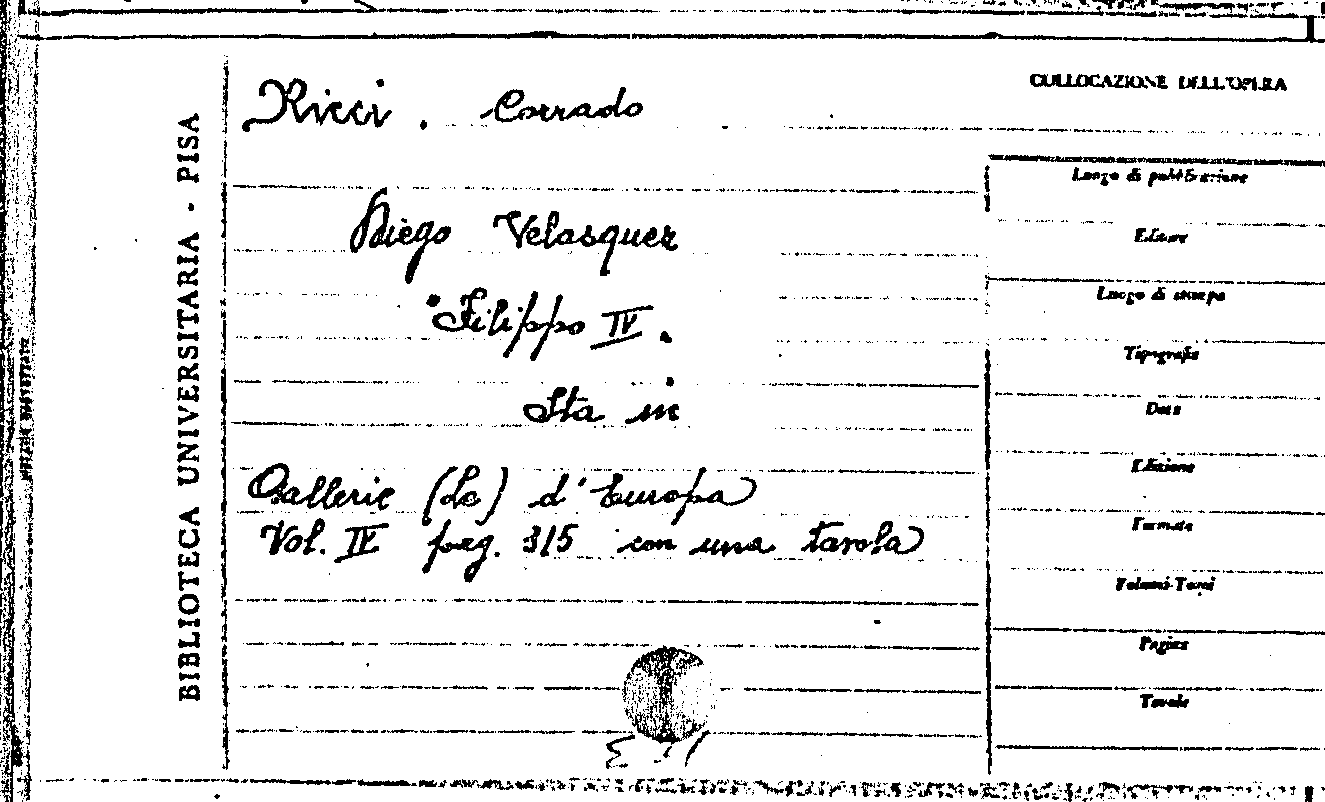 COLLOCAZIONE DELL'OPERA
BIBLIOTECA UNIVERSITARIA - PISA
Ricci. Corrado
Diego Velasquez
Filippo IV.
Sta in
Gallerie (Le) d'Europa
Vol. IV pag. 315 con una tavola
Luogo di pubblicazione
Editore
Luogo di stampa
Tipografia
Data
Edizione
Formato
Volumi-Tomi
Pagine
Tavole